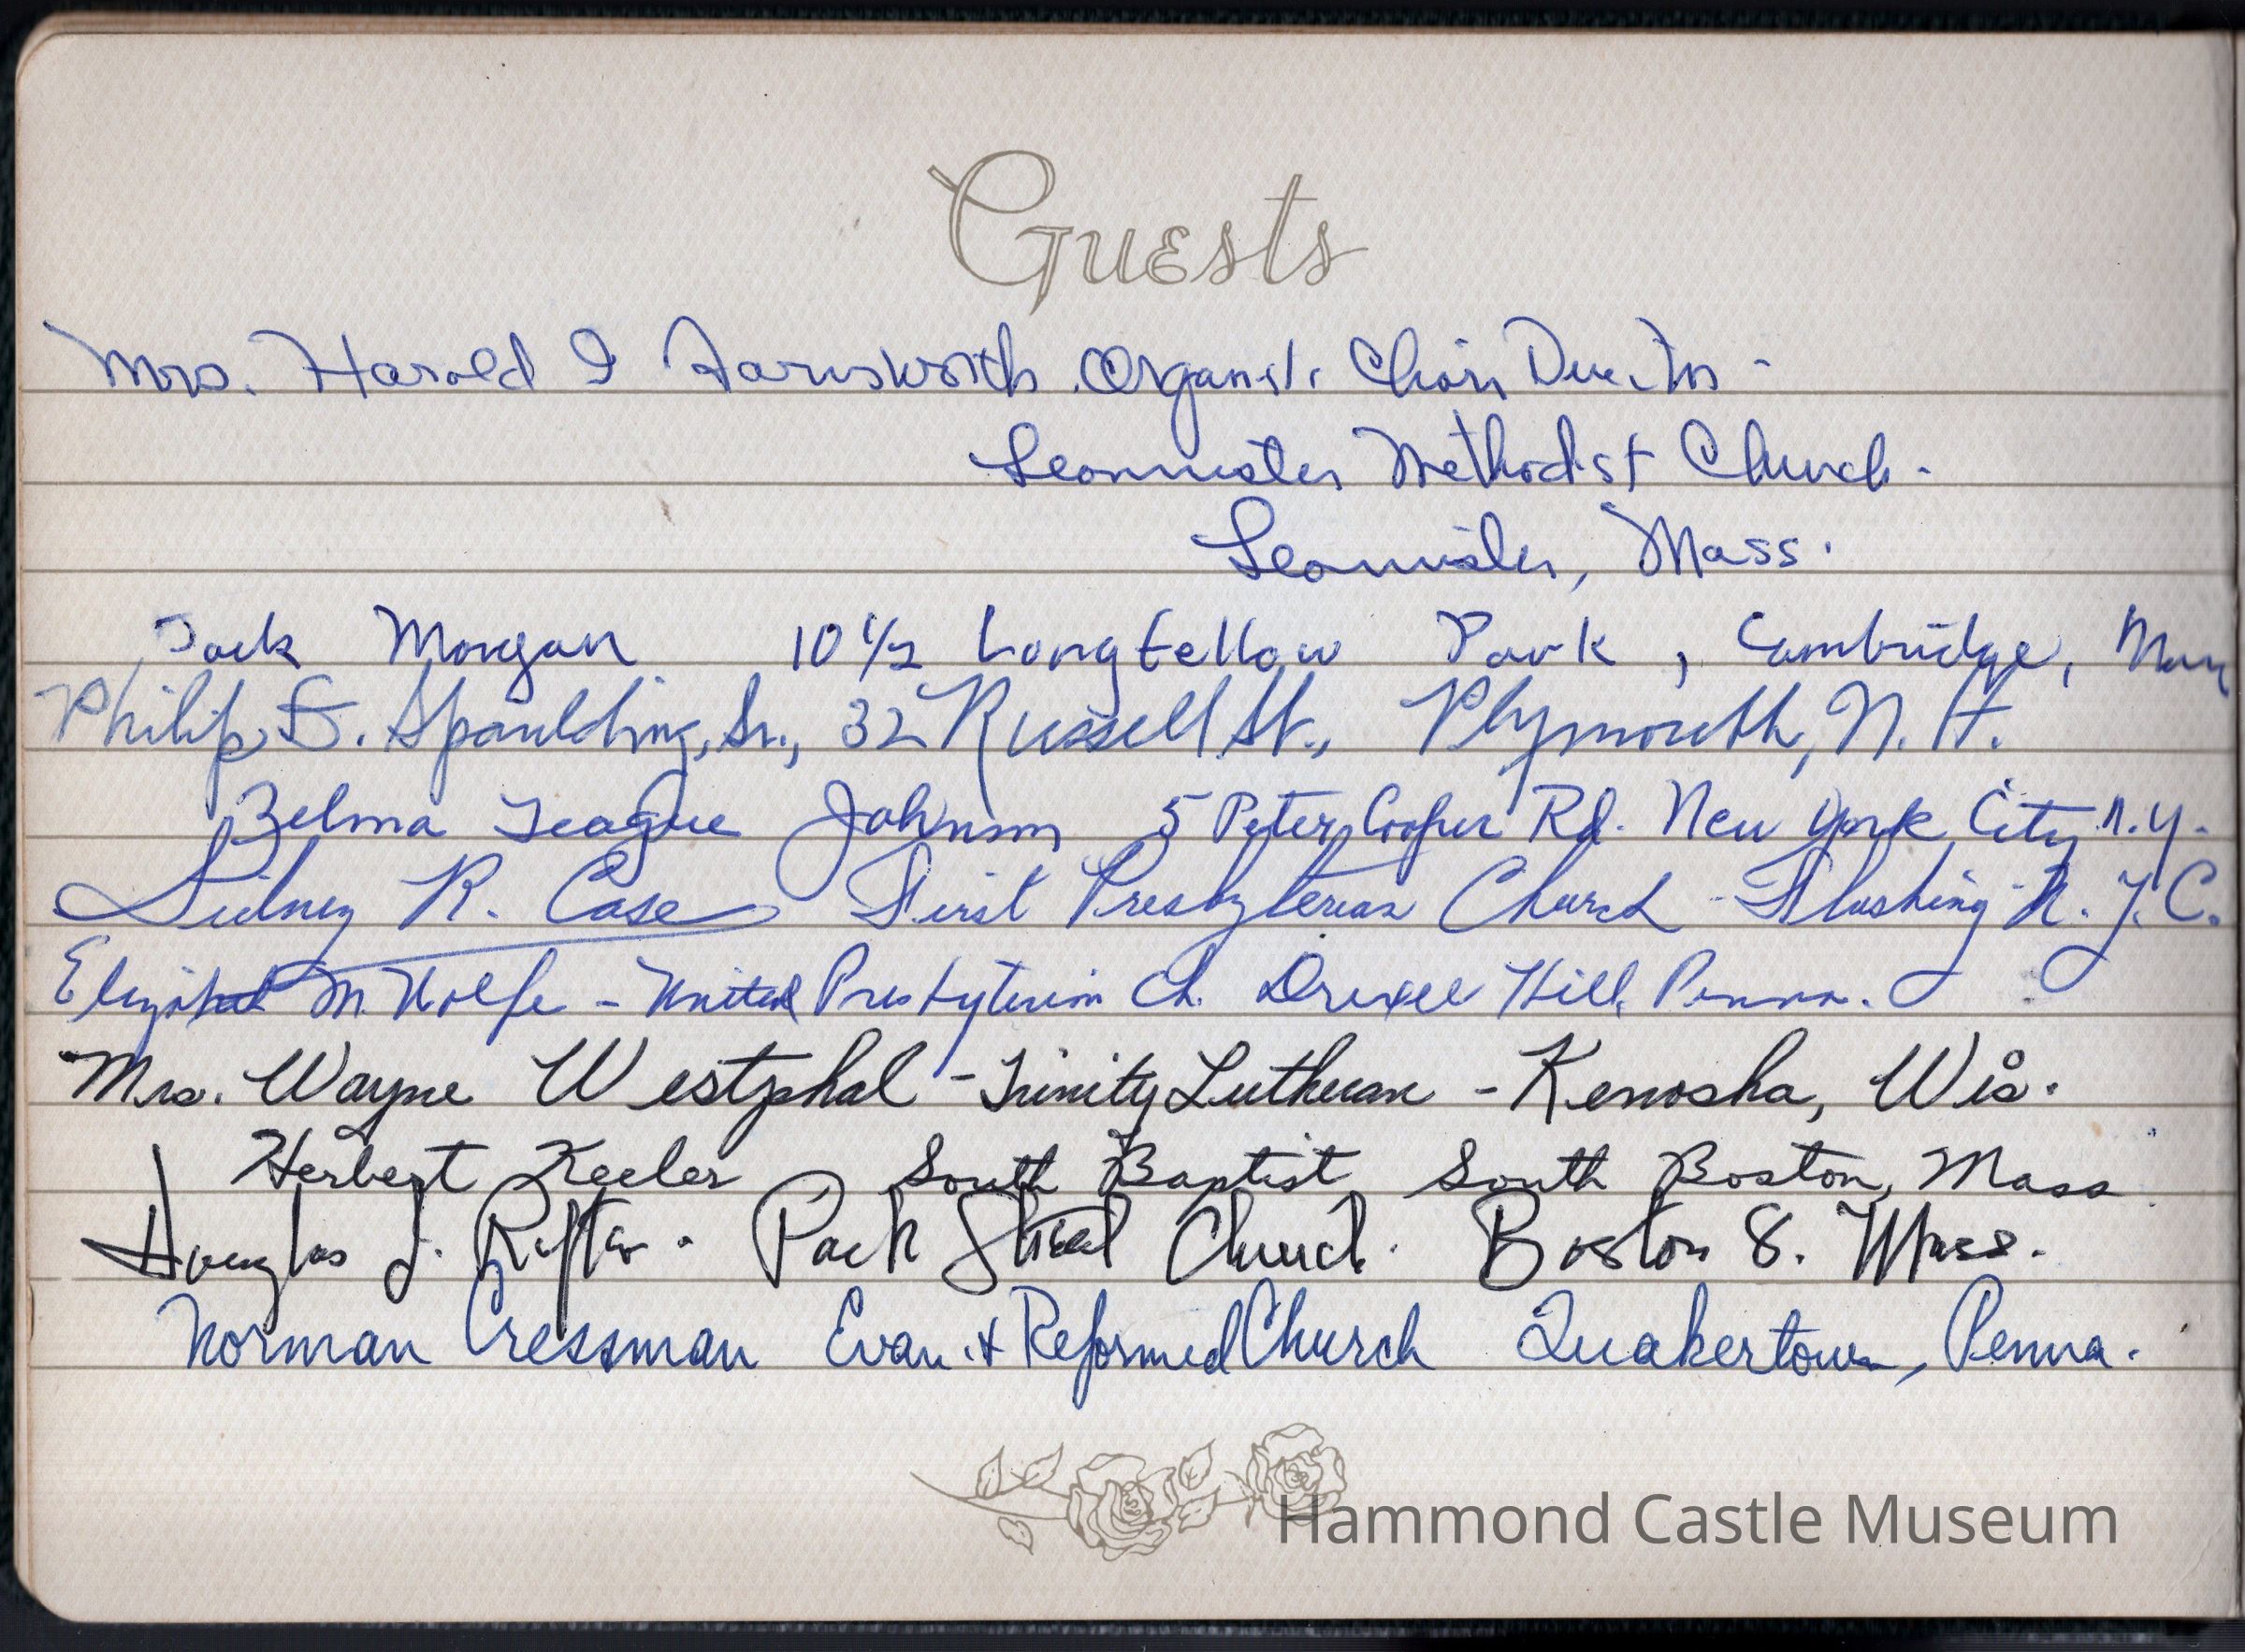 Guests
Mrs. Harold I Farnsworth Organist. Choir Director -
Leominster Methodist Church -
Leominster, Mass.
Jack Morgan 10 1/2 Longfellow Park, Cambridge, Mass
Philip E. Spaulding, Sr., 32 Russell St., Plymouth, N. H.
Zelma Teague Johnson 5 Peter Cooper Rd. New York City N.Y.
Sidney R. Case First Presbyterian Church - Flushing N. Y. C.
Elizabeth M. Wolfe - United Presbyterian Ch. Drexel Hill, Penna.
Mrs. Wayne Westphal - Trinity Lutheran - Kenosha, Wis.
Herbert Keeler South Baptist South Boston, Mass
Douglas J. Rafter. Park Street Church. Boston 8. Mass.
Norman Cressman Evan. & Reformed Church Quakertown, Penna.
Hammond Castle Museum